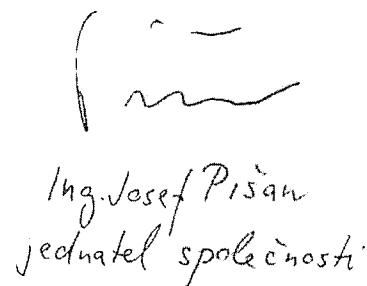 Ing. Josef Pišan
jednatel společnosti